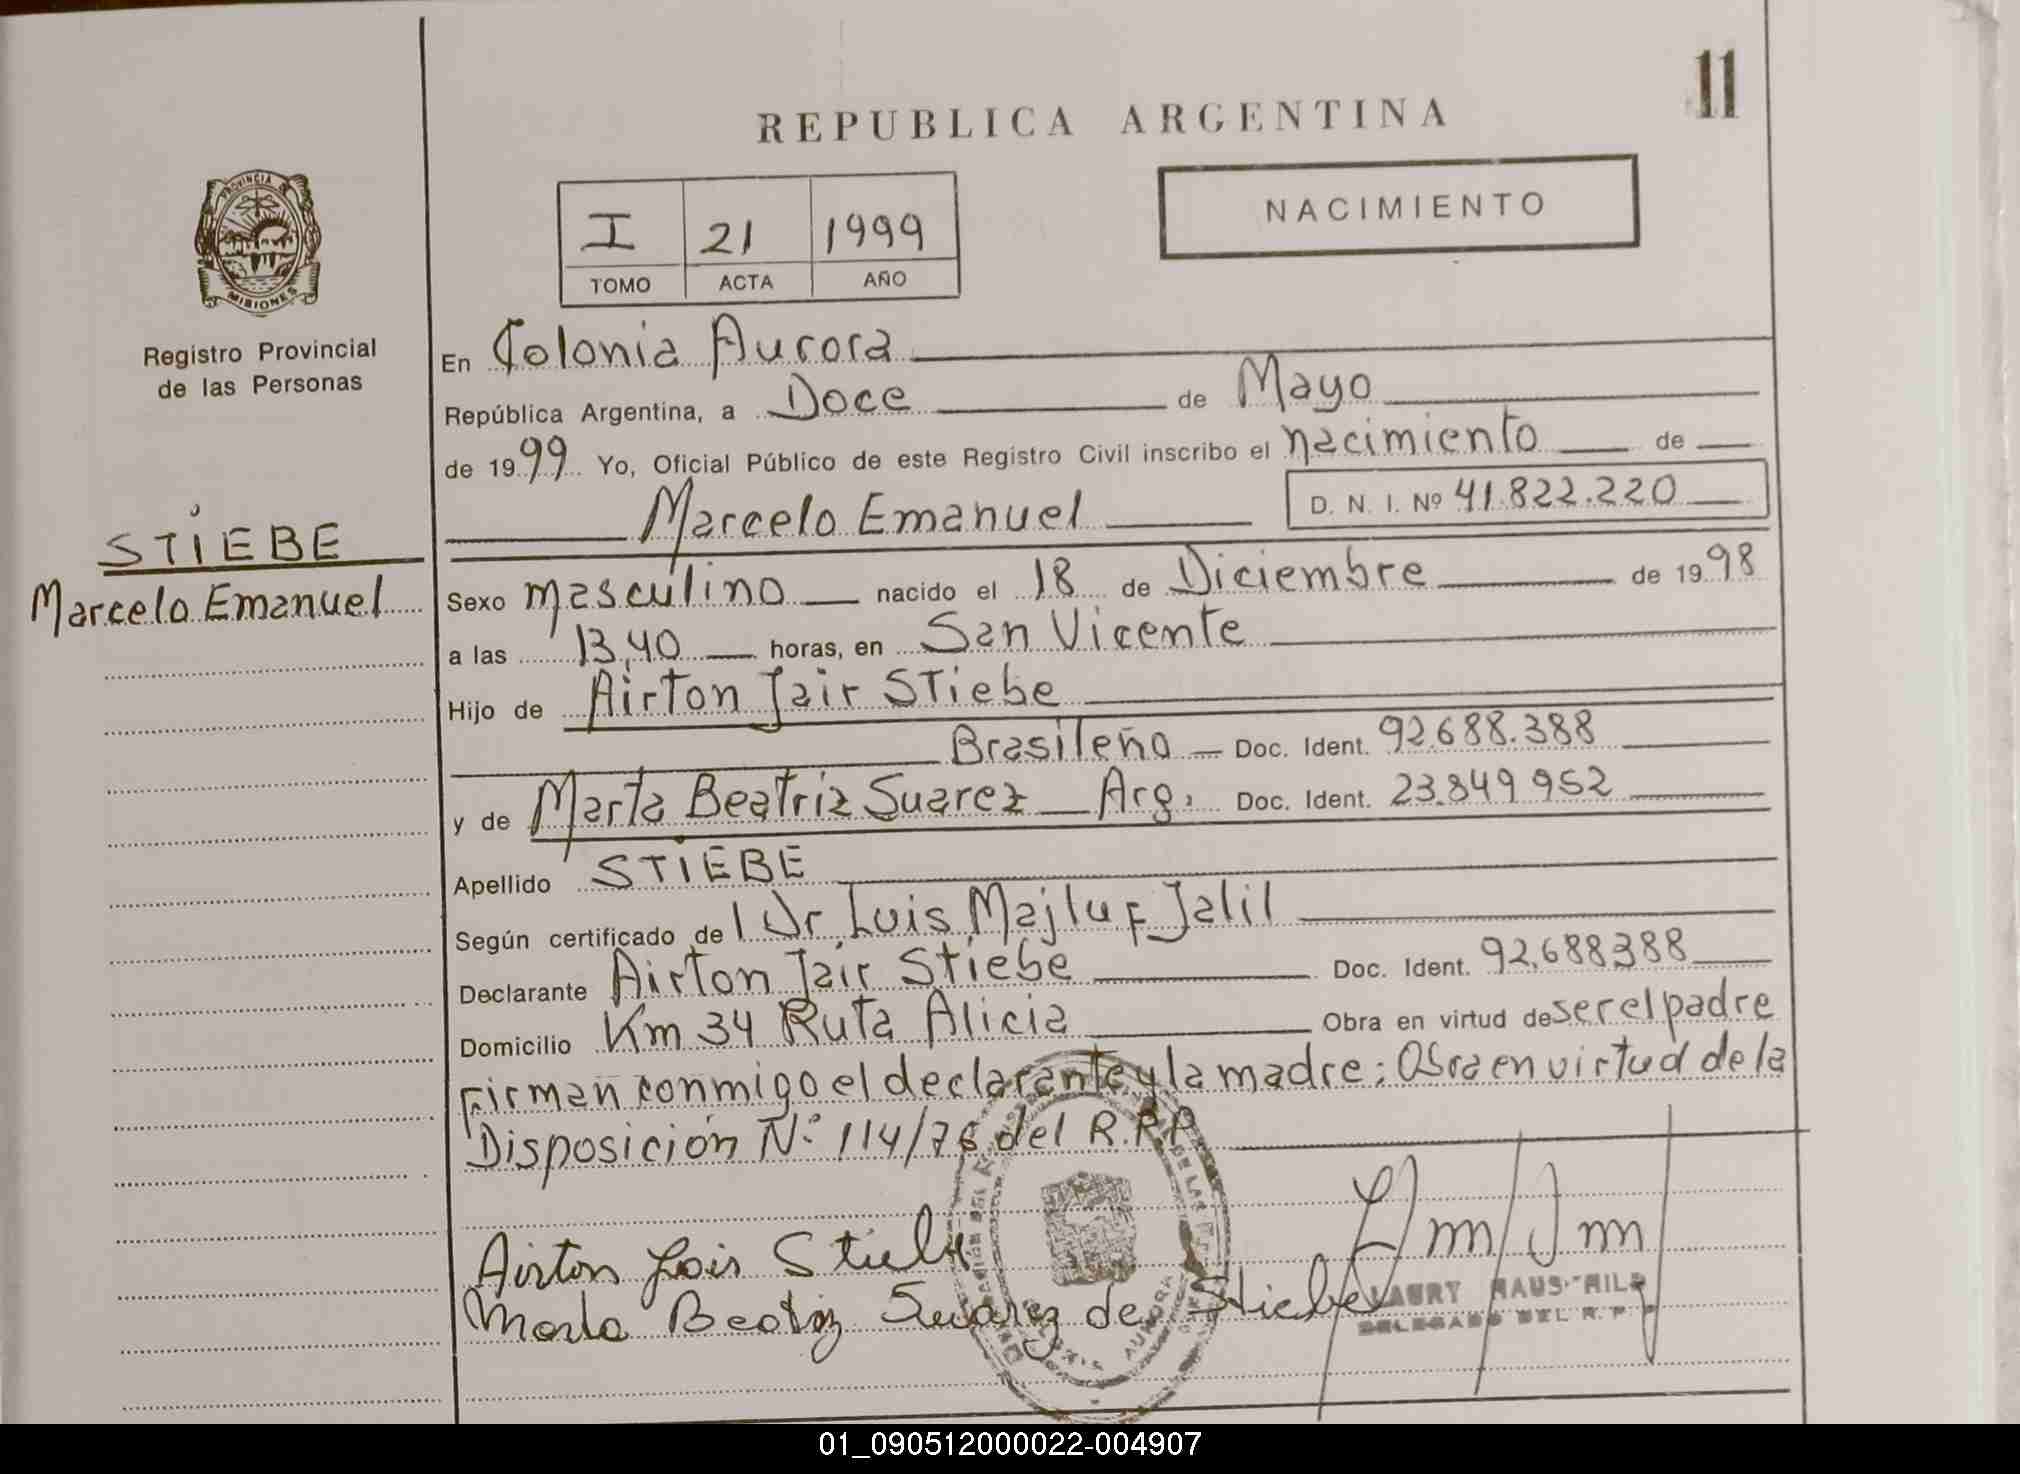 11
REPUBLICA ARGENTINA
NACIMIENTO
I 21 1999
TOMO ACTA AÑO
PROVINCIA DE
MISIONES
Registro Provincial
de las Personas
STIEBE
Marcelo Emanuel
En Colonia Aurora
República Argentina, a Doce de Mayo
de 1999 Yo, Oficial Público de este Registro Civil inscribo el nacimiento de
Marcelo Emanuel D. N. I. Nº 41.822.220
Sexo masculino nacido el 18 de Diciembre de 1998
a las 13,40 horas, en San Vicente
Hijo de Airton Jair Stiebe
Brasileño Doc. Ident. 92.688.388
y de Marta Beatriz Suarez Arg. Doc. Ident. 23.849 952
Apellido STIEBE
Según certificado de l Dr. Luis Majluf Jalil
Declarante Airton Jair Stiebe Doc. Ident. 92.688388
Domicilio Km 34 Ruta Alicia Obra en virtud de ser el padre
Firman conmigo el declarante y la madre; Obra en virtud de la
Disposición Nº 114/76 del R.P.P.
Airton Jair Stiebe
Marta Beatriz Suarez de Stiebe
DELEGADO DEL R.P.P.
AURORA
01_090512000022-004907